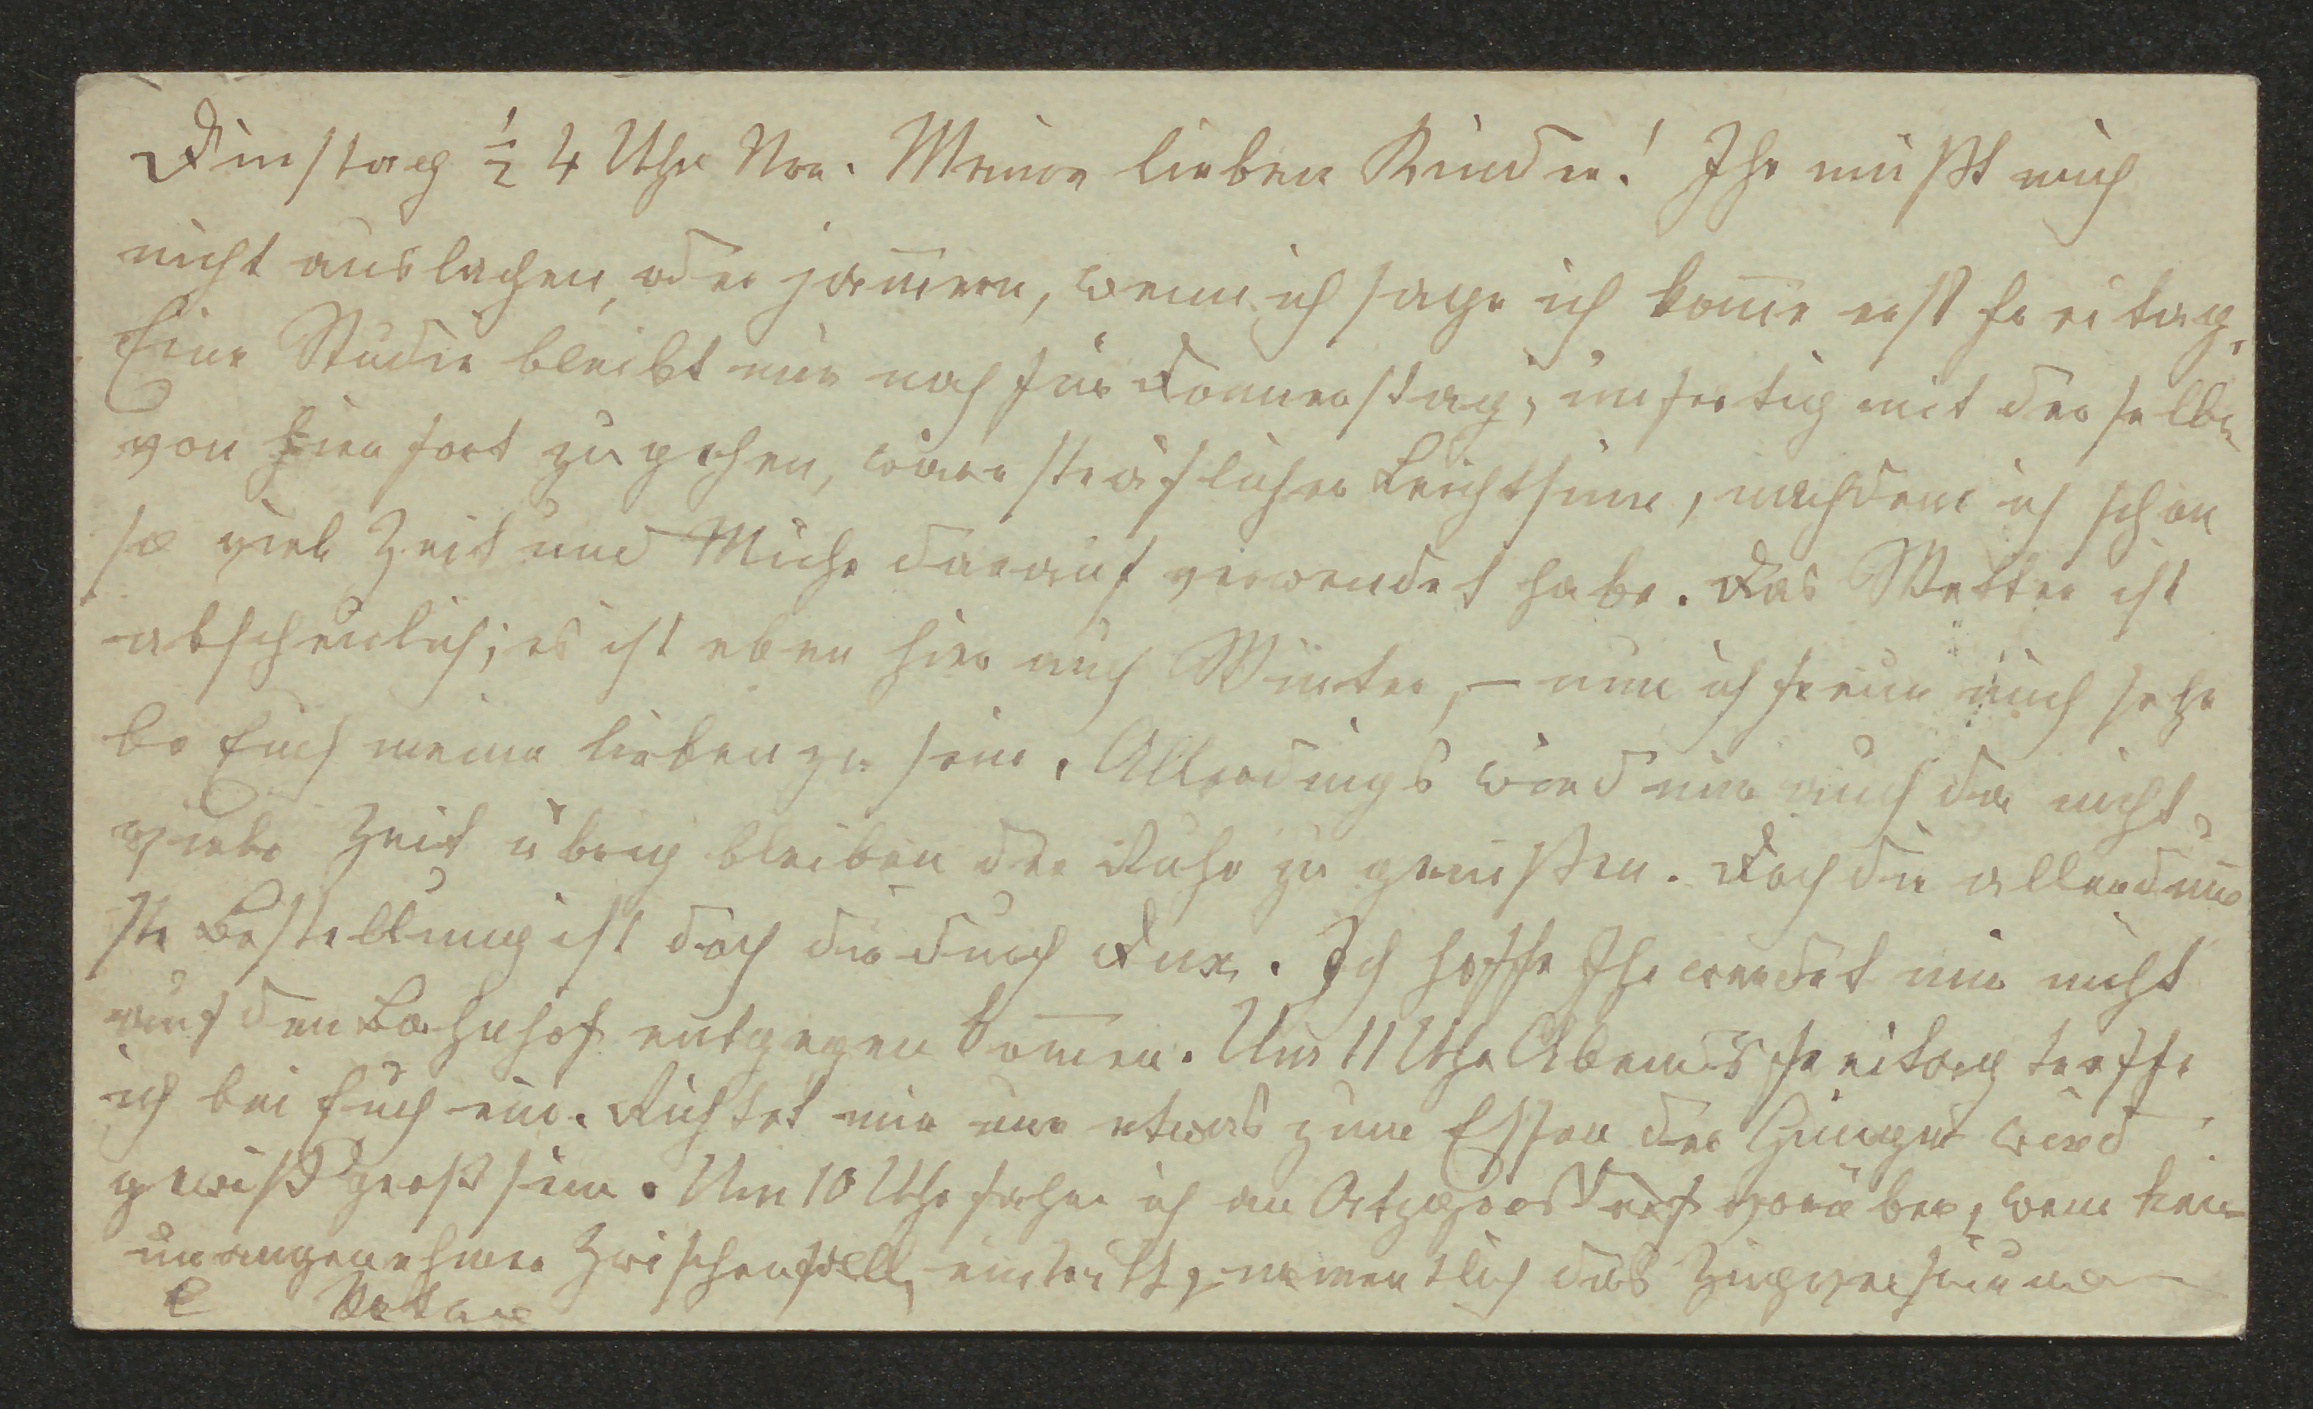 Dinstag ½ 4 Uhr Nm. Meine lieben Kinder! Ihr müßt mich
nicht auslachen, oder jam̅ern, wenn ich sage ich kom̅e erst Freitag.
Eine Studie bleibt mir noch für Donnerstag, unfertig mit derselben
von hier fort zu gehen, wäre sträflicher Leichtsinn, nachdem ich schon
so viel Zeit und Mühe darauf verwendet habe. Das Wetter ist
abscheulich; es ist eben hier auch Winter, – nun ich freue mich sehr
be Euch meine lieben zu sein. Allerdings wird mir auch da nicht
viele Zeit übrig bleiben der Ruhe zu genießen. Doch die
ste Bestellung ist doch die durch Dux. Ich hoffe Ihr werdet mir nicht
auf den Bahnhof entgegen kom̅en. Um 11 Uhr Abends Freitag treffe
ich bei Euch ein. Richtet mir nur etwas zum Essen der Hunger wird
gewiß groß sein. Um 10 Uhr fahre ich an Atzgersdorf vorüber, wenn kein
unangenehmer Zwischenfall eintritt, namentlich das